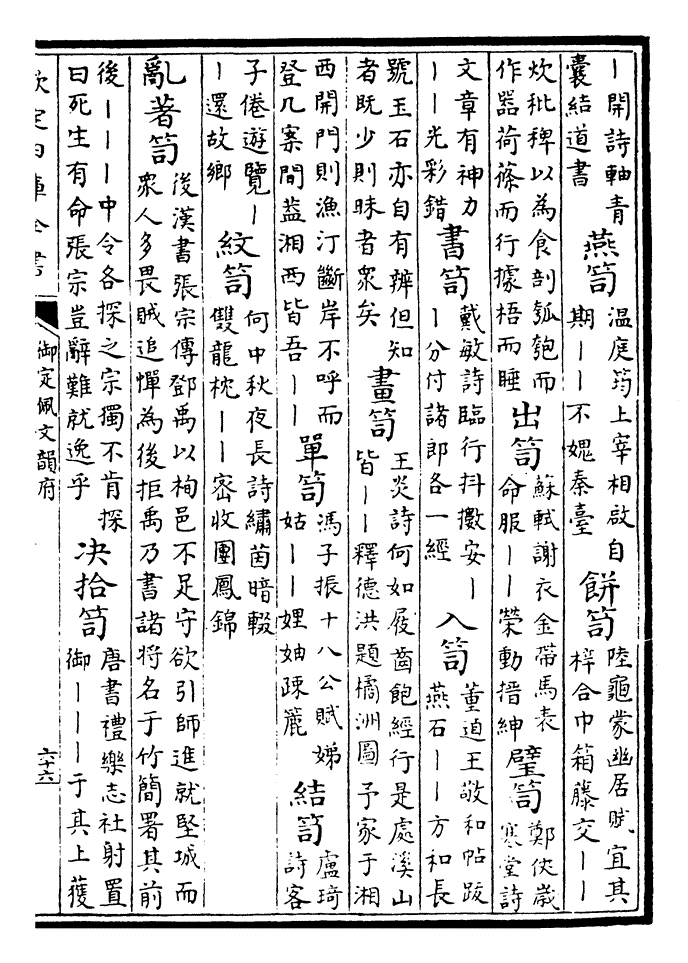 ｜開詩軸青
囊結道書
燕笥
温庭筠上宰相啟自
期｜｜不媿秦臺
餅笥
陸龜蒙幽居賦宜其
梓合巾箱藤交｜｜
炊粃稗以為食剖瓠匏而
作器荷蓧而行據梧而睡
出笥
蘇軾謝衣金帶馬表
命服｜｜榮動搢紳
璧笥
鄭俠歲
寒堂詩
文章有神力
｜｜光彩錯
書笥
戴敏詩臨行抖擻安｜
｜分付諸郎各一經
入笥
董逌王敬和帖跋
燕石｜｜方和長
號玉石亦自有辨但知
者既少則昧者衆矣
畫笥
王炎詩何如屐齒飽經行是處溪山
皆｜｜釋德洪題橘洲圖予家于湘
西開門則漁汀斷岸不呼而
登几案間葢湘西皆吾｜｜
單笥
馮子振十八公賦娣
姑｜｜娌妯疎簏
結笥
盧琦
詩客
子倦遊覽｜
｜還故鄉
紋笥
何中秋夜長詩繡茵暗輟
雙龍枕｜｜密收團鳳錦
亂著笥
後漢書張宗傳鄧禹以栒邑不足守欲引師進就堅城而
衆人多畏賊追憚為後拒禹乃書諸將名于竹簡署其前
後｜｜｜中令各探之宗獨不肯探
曰死生有命張宗豈辭難就逸乎
决拾笥
唐書禮樂志社射置
御｜｜｜于其上獲
欽定四庫全書
御定佩文韻府
六十六